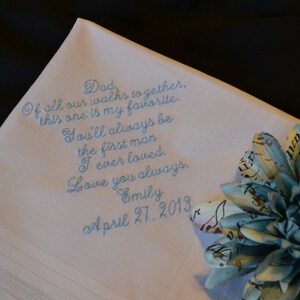 Dad,
Of all our walks together,
this one is my favorite.
You'll always be
the first man
I ever loved.
Love you always,
Emily
April 27, 2013